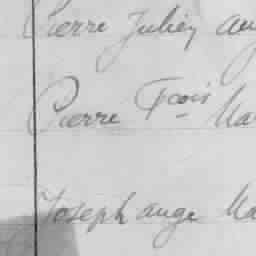 Pierre Julien Aug
Pierre Fcois Ma
Joseph ange Ma